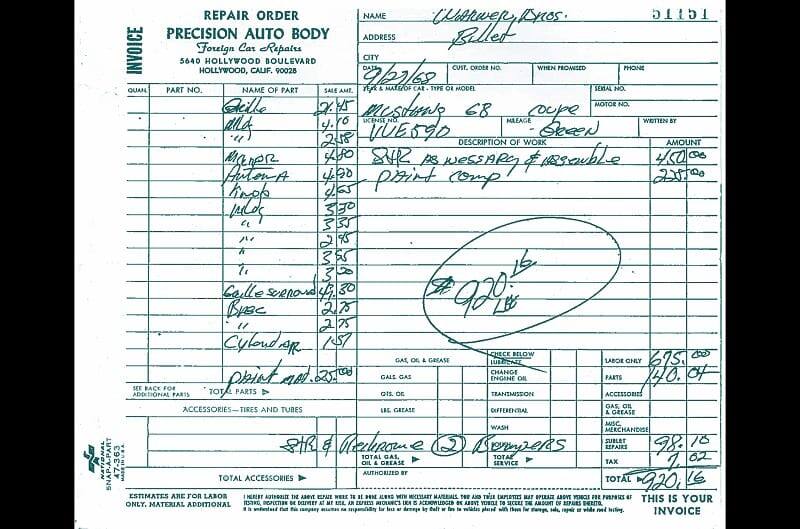 REPAIR ORDER
PRECISION AUTO BODY
Foreign Car Repairs
5640 HOLLYWOOD BOULEVARD
HOLLYWOOD, CALIF. 90028
INVOICE
51151
NAME Warner Bros.
ADDRESS Bullet
CITY
DATE 9/27/68 CUST. ORDER NO. WHEN PROMISED PHONE
YEAR & MAKE OF CAR - TYPE OR MODEL SERIAL NO.
Mustang 68 Coupe MOTOR NO.
LICENSE NO. VVE590 MILEAGE Green WRITTEN BY
QUAN. PART NO. NAME OF PART SALE AMT.
Grille 21.45
Mld 4.10
" 2.58
4.80
Antenna 4.90
Knob 4.65
Mldg 3.30
" 3.35
" 2.95
" 3.55
" 3.50
Grille Surround 49.30
2.75
" 2.75
Cylinder 1.57
Paint mat. 25.00
DESCRIPTION OF WORK AMOUNT
S&R as nessary & assemble 450.00
paint comp 225.00
$920.16
SEE BACK FOR ADDITIONAL PARTS TOTAL PARTS
ACCESSORIES—TIRES AND TUBES
S&R & Rechrome (2) Bumpers
TOTAL ACCESSORIES
GAS, OIL & GREASE
GALS. GAS
QTS. OIL
LBS. GREASE
TOTAL GAS, OIL & GREASE
AUTHORIZED BY
CHECK BELOW
LUBRICATE
CHANGE ENGINE OIL
TRANSMISSION
DIFFERENTIAL
WASH
TOTAL SERVICE
LABOR ONLY 675.00
PARTS 140.04
ACCESSORIES
GAS, OIL & GREASE
MISC. MERCHANDISE
SUBLET REPAIRS 98.10
TAX 7.02
TOTAL 920.16
NATIONAL
SNAP-A-PART
47-363
MADE IN U.S.A.
ESTIMATES ARE FOR LABOR ONLY. MATERIAL ADDITIONAL
I HEREBY AUTHORIZE THE ABOVE REPAIR WORK TO BE DONE ALONG WITH NECESSARY MATERIALS. YOU AND YOUR EMPLOYEES MAY OPERATE ABOVE VEHICLE FOR PURPOSES OF
TESTING, INSPECTION OR DELIVERY AT MY RISK. AN EXPRESS MECHANICS LIEN IS ACKNOWLEDGED ON ABOVE VEHICLE TO SECURE THE AMOUNT OF REPAIRS THERETO.
It is understood that this company assumes no responsibility for loss or damage by theft or fire to vehicles placed with them for storage, sale, repair or while road testing.
THIS IS YOUR INVOICE